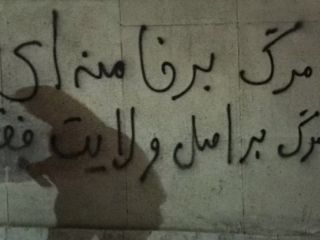 مرگ بر خامنه ای
مرگ بر اصل ولایت فق